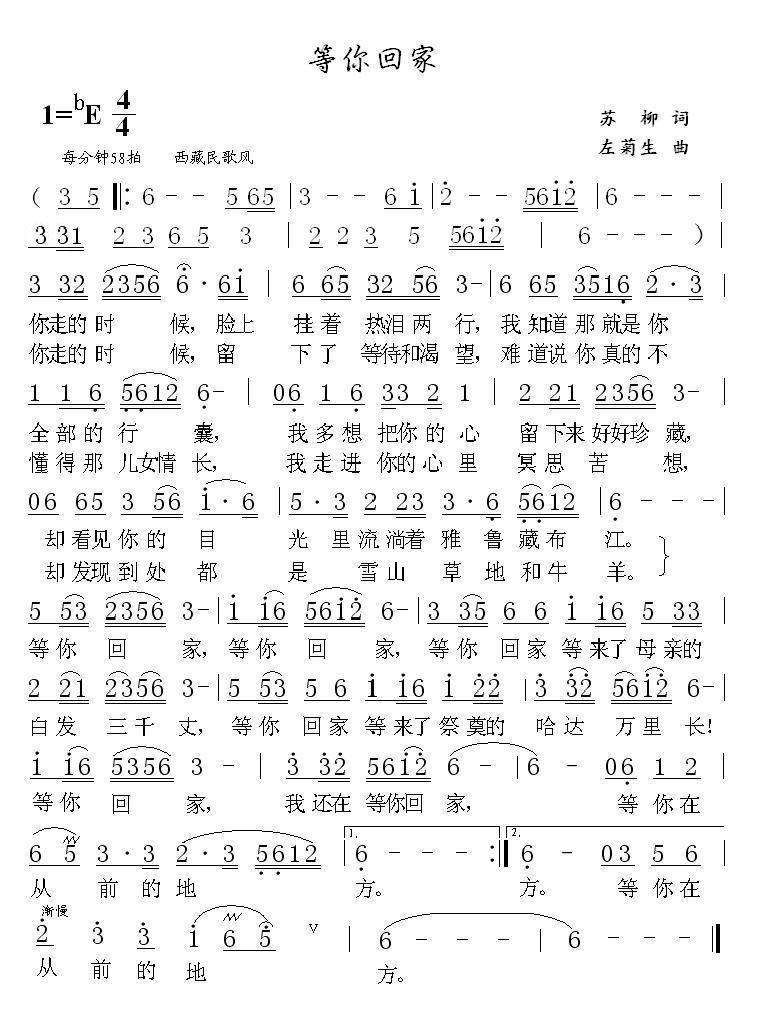 等你回家
1=bE 4/4
苏 柳 词
左菊生 曲
每分钟58拍 西藏民歌风
( 3 5 ‖: 6 - - 5 65 | 3 - - 6 i | 2 - - 5612 | 6 - - - |
3 31 2 3 6 5 3 | 2 2 3 5 5612 | 6 - - - ) |
3 32 2356 6 · 6i | 6 65 32 56 3- | 6 65 3516 2 · 3 |
你走的时 候，脸上 挂着 热泪两 行，我知道那就是你
你走的时 候，留 下了 等待和渴 望，难道说你真的不
1 1 6 5612 6- | 06 1 6 33 2 1 | 2 21 2356 3- |
全部的行 囊， 我多想把你的心 留下来好好珍藏，
懂得那儿女情长， 我走进你的心里 冥思苦 想，
06 65 3 56 i · 6 | 5 · 3 2 23 3 · 6 5612 | 6 - - |
却看见你的目 光里流淌着雅鲁藏布 江。
却发现到处都 是雪山草地和牛 羊。
5 53 2356 3- | i i6 56i2 6- | 3 35 6 6 i i6 5 33 |
等你回 家，等你回 家，等你回家等来了母亲的
2 21 2356 3- | 5 53 5 6 i i6 i 22 | 3 32 56i2 6- |
白发三千丈，等你回家等来了祭奠的哈达万里长！
i i6 5356 3 - | 3 32 56i2 6 - | 6 - 06 1 2 |
等你回 家， 我还在等你回家， 等你在
6 5 3 · 3 2 · 3 5612 | 1. 6 - - - :‖ 2. 6 - 03 5 6 |
从 前的地 方。 方。 等你在
渐慢
2 3 3 i 6 5 V | 6 - - - | 6 - - - ‖
从 前的地 方。